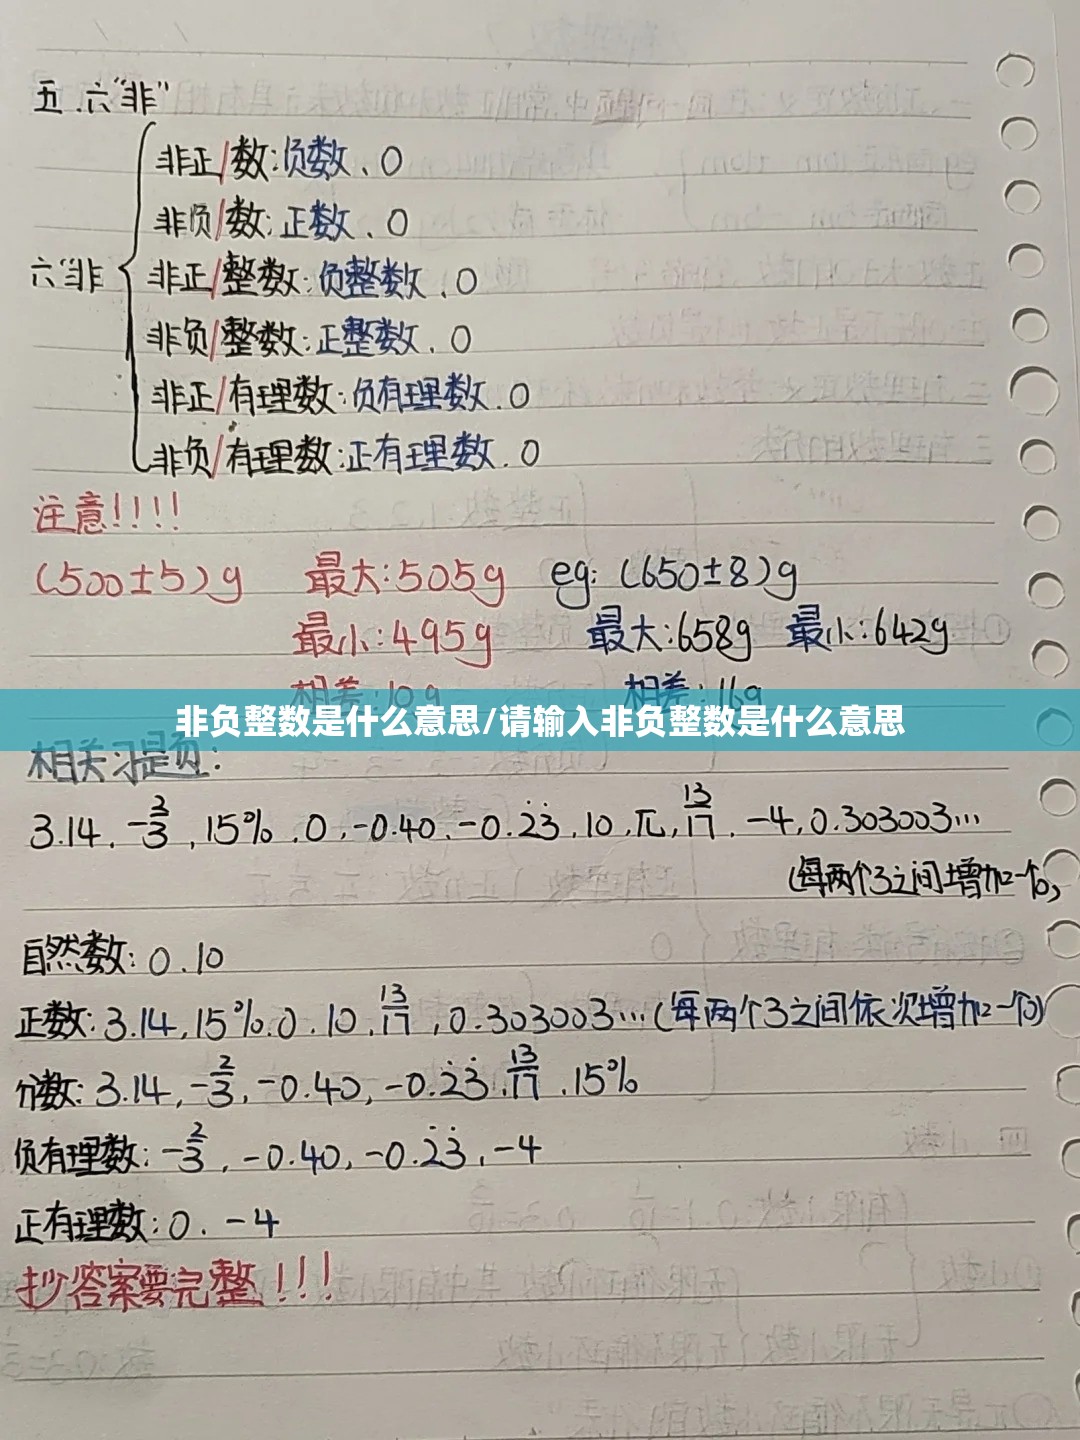 五.六“非”
非正/数:负数、0
非负/数:正数、0
六“非 非正/整数:负整数、0
非负/整数:正整数、0
非正/有理数:负有理数、0
非负/有理数:正有理数、0
注意!!!!
(500±5)g 最大:505g eg:(650±8)g
最小:495g 最大:658g 最小:642g
相差:10g 相差:16g
非负整数是什么意思/请输入非负整数是什么意思
相关习题:
3.14、-2/3,15%、0、-0.40、-0.2̇3̇、10、π,13/17、-4,0.303003…
(每两个3之间增加一个0)
自然数:0、10
正数:3.14,15%、0、10、13/17,0.303003…(每两个3之间依次增加一个0)
分数:3.14,-2/3,-0.40,-0.2̇3̇、13/17、15%
负有理数:-2/3、-0.40,-0.2̇3̇、-4
正有理数:0、-4
抄答案要完整!!!